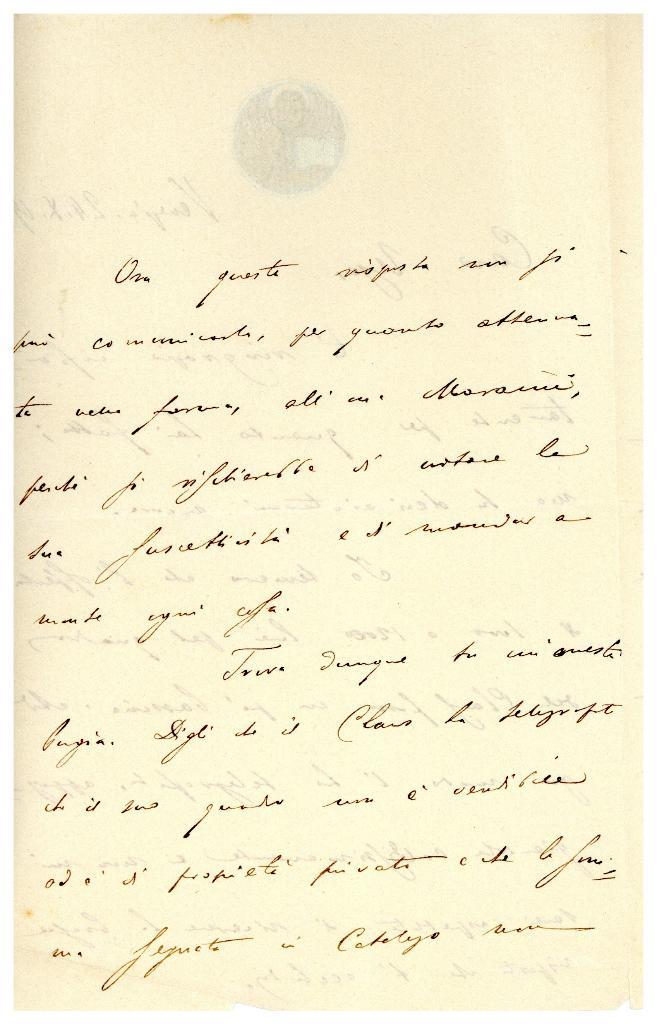 Ora questa risposta non si
può comunicarla, per quanto attenua=
ta nella forma, all' on. Morani,
perchè si rischierebbe di urtare la
sua suscettività e di mandar a
monte ogni cosa.
Trova dunque tu un'onesta
bugia. Digli che il Claus ha telegrafato
che il suo quadro non è vendibile
od è di proprietà privata e che la som=
ma segnata in Catalogo non